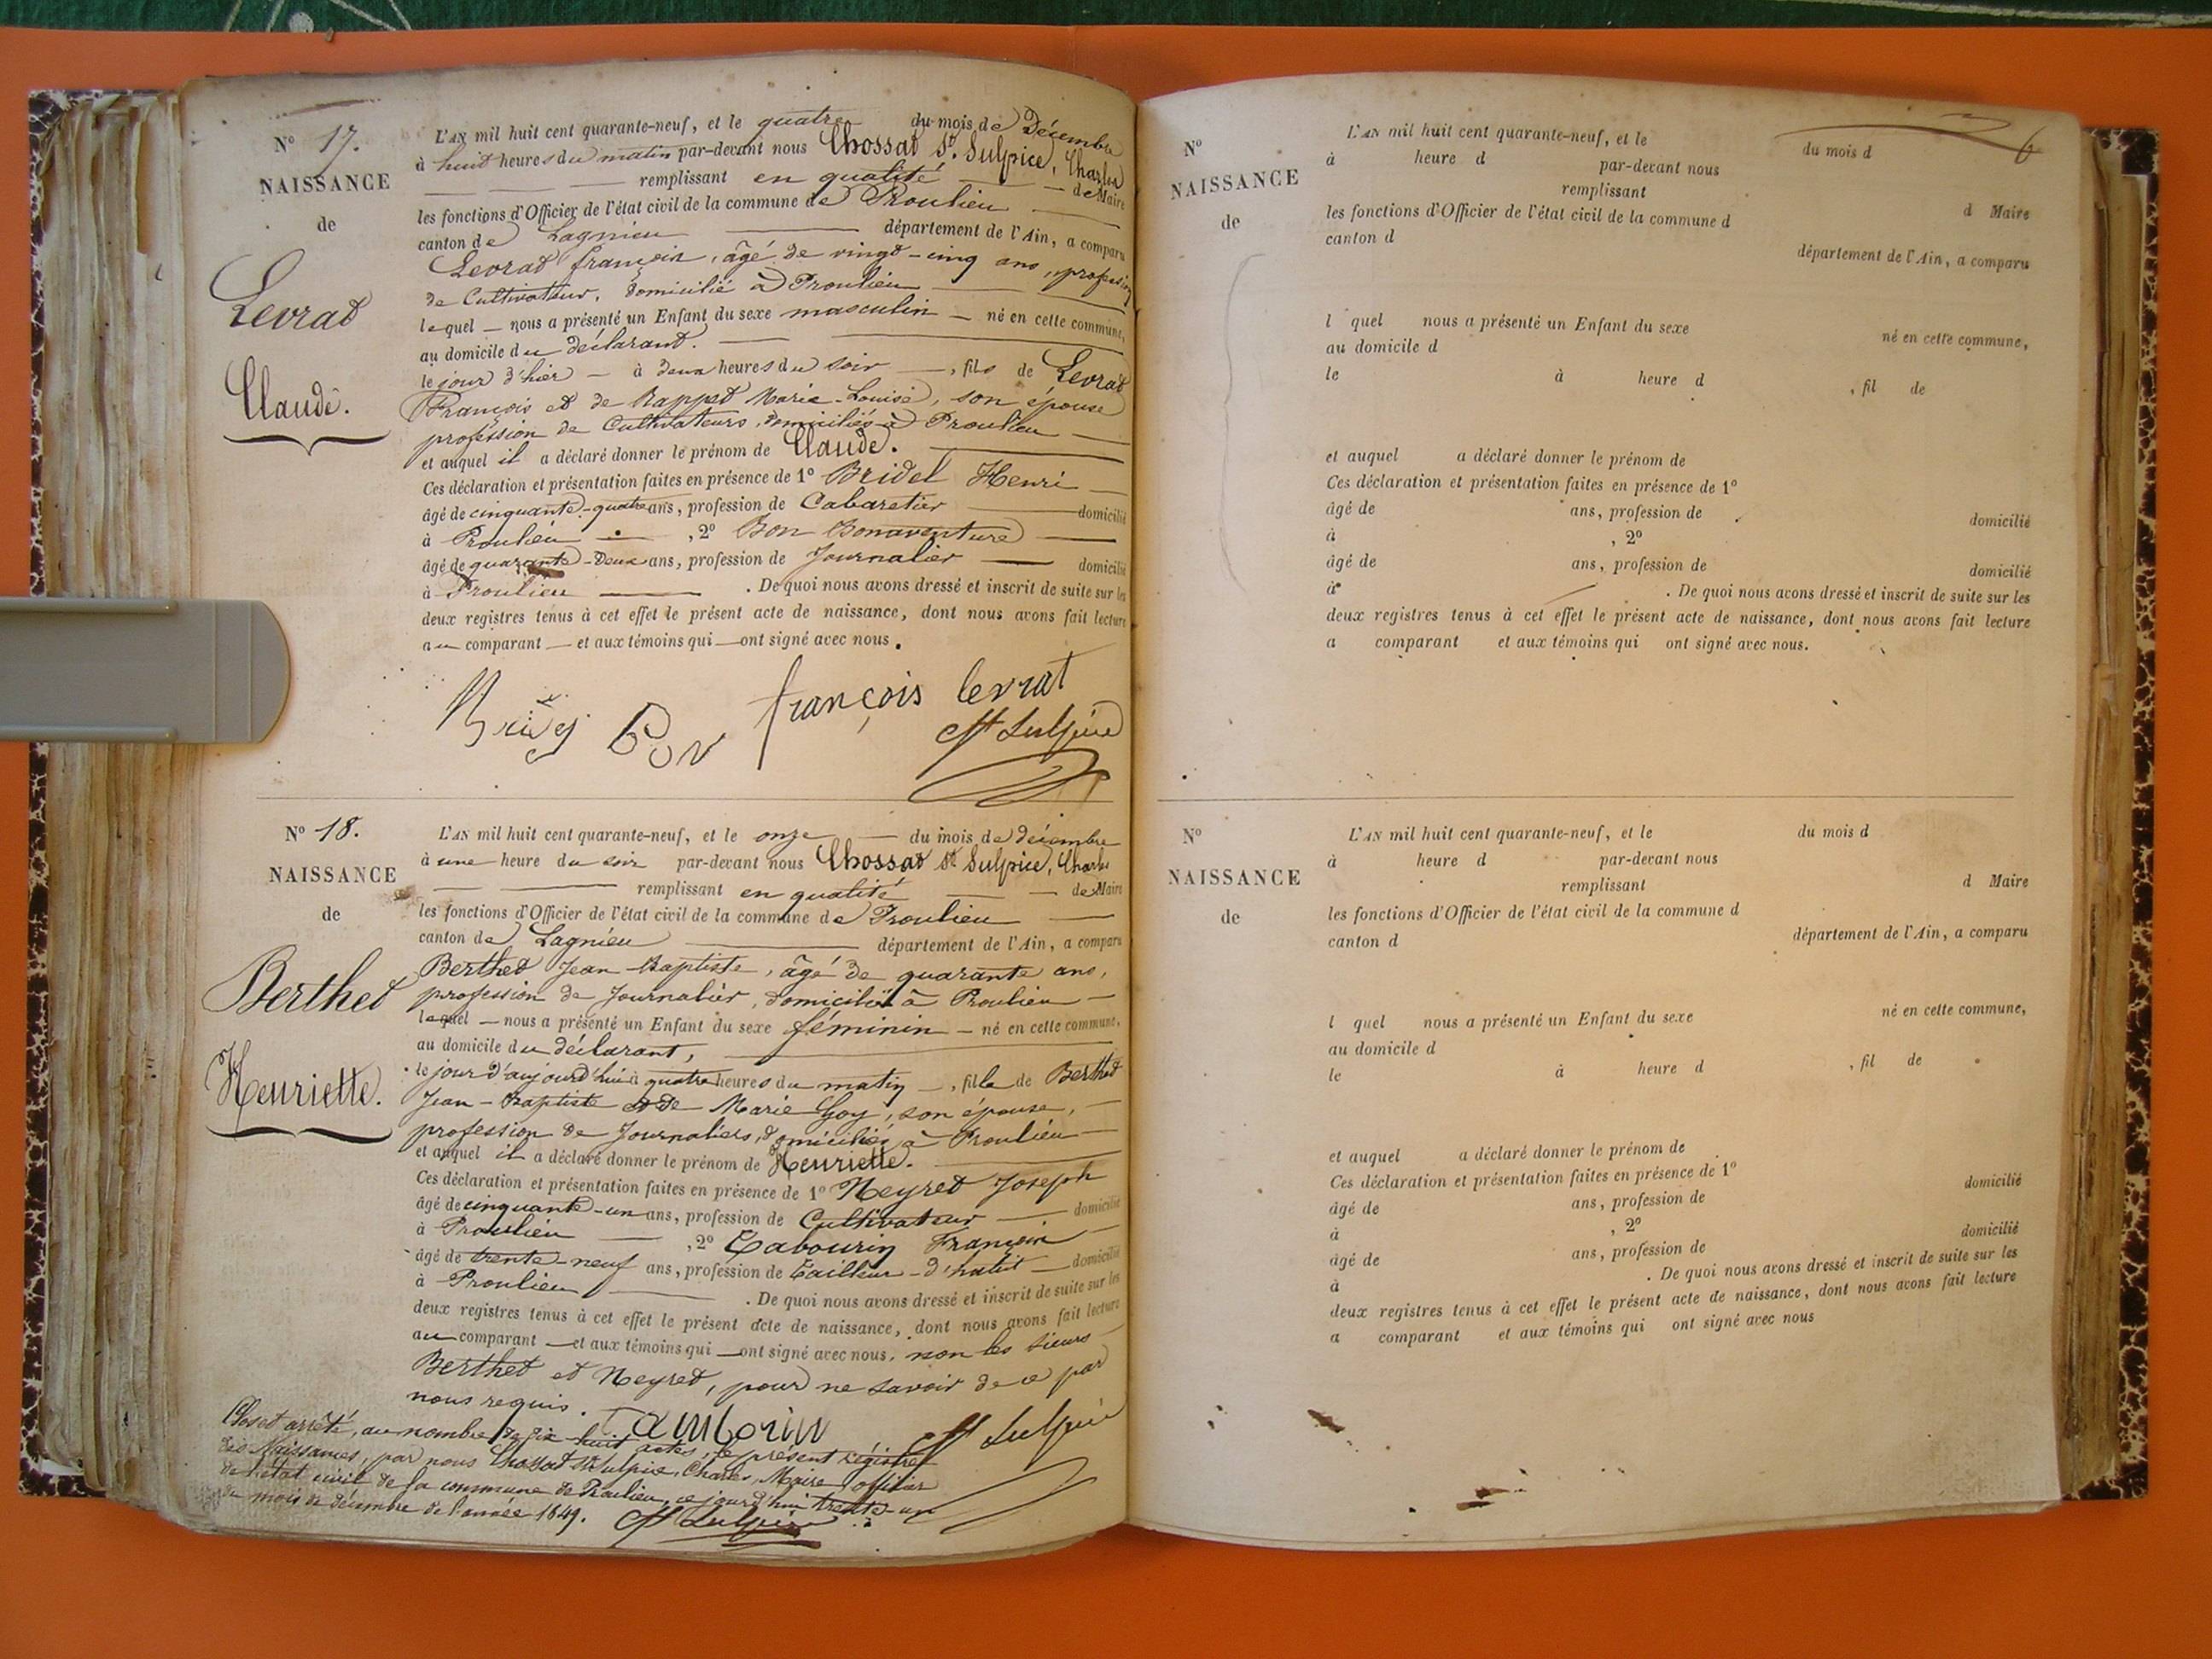 N° 17.
NAISSANCE
de
Levrat
Claude.
L'AN mil huit cent quarante-neuf, et le quatre du mois de Décembre
à huit heures du matin par-devant nous Chossat St. Sulpice, Charles
remplissant en qualité de Maire
les fonctions d'Officier de l'état civil de la commune de Proulieu
canton de Lagnieu département de l'Ain, a comparu
Levrat françois, âgé de vingt-cinq ans, profession
de Cultivateur, domicilié à Proulieu
lequel nous a présenté un Enfant du sexe masculin né en cette commune,
au domicile du déclarant.
le jour d'hier à deux heures du soir, fils de Levrat
François et de Rappet Marie-Louise, son épouse
profession de Cultivateurs, domiciliés à Proulieu
et auquel il a déclaré donner le prénom de Claude.
Ces déclaration et présentation faites en présence de 1° Bridel Henri
âgé de cinquante-quatre ans, profession de Cabaretier domicilié
à Proulieu, 2° Bon Bonaventure
âgé de quarante-deux ans, profession de Journalier domicilié
à Proulieu. De quoi nous avons dressé et inscrit de suite sur les
deux registres tenus à cet effet le présent acte de naissance, dont nous avons fait lecture
au comparant et aux témoins qui ont signé avec nous.
Bon françois levrat
St Sulpice
N° 18.
NAISSANCE
de
Berthet
Henriette.
L'AN mil huit cent quarante-neuf, et le onze du mois de décembre
à une heure du soir par-devant nous Chossat St Sulpice, Charles
remplissant en qualité de Maire
les fonctions d'Officier de l'état civil de la commune de Proulieu
canton de Lagnieu département de l'Ain, a comparu
Berthet Jean-Baptiste, âgé de quarante ans,
profession de Journalier, domicilié à Proulieu
lequel nous a présenté un Enfant du sexe féminin né en cette commune,
au domicile du déclarant,
le jour d'aujourd'hui à quatre heures du matin, fille de Berthet
Jean-Baptiste et de Marie Goy, son épouse,
profession de Journaliers, domiciliés à Proulieu
et auquel il a déclaré donner le prénom de Henriette.
Ces déclaration et présentation faites en présence de 1° Neyret Joseph
âgé de cinquante-un ans, profession de Cultivateur domicilié
à Proulieu, 2° Tabourin François
âgé de trente-neuf ans, profession de Tailleur-d'habit domicilié
à Proulieu. De quoi nous avons dressé et inscrit de suite sur les
deux registres tenus à cet effet le présent acte de naissance, dont nous avons fait lecture
au comparant et aux témoins qui ont signé avec nous, non les sieurs
Berthet et Neyret, pour ne savoir de ce par
nous requis.
St Sulpice
Clos et arrêté, au nombre de dix-huit actes, le présent régistre
des Naissances, par nous Chossat St Sulpice, Charles, Maire officier
de l'état civil de la commune de Proulieu, ce jourd'hui trente-un
du mois de décembre de l'année 1849. St Sulpice
6
N°
NAISSANCE
de
L'AN mil huit cent quarante-neuf, et le du mois d
à heure d par-devant nous
remplissant d Maire
les fonctions d'Officier de l'état civil de la commune d
canton d département de l'Ain, a comparu
l quel nous a présenté un Enfant du sexe né en cette commune,
au domicile d
le à heure d , fil de
et auquel a déclaré donner le prénom de
Ces déclaration et présentation faites en présence de 1°
âgé de ans, profession de domicilié
à , 2°
âgé de ans, profession de domicilié
à . De quoi nous avons dressé et inscrit de suite sur les
deux registres tenus à cet effet le présent acte de naissance, dont nous avons fait lecture
a comparant et aux témoins qui ont signé avec nous.
N°
NAISSANCE
de
L'AN mil huit cent quarante-neuf, et le du mois d
à heure d par-devant nous
remplissant d Maire
les fonctions d'Officier de l'état civil de la commune d
canton d département de l'Ain, a comparu
l quel nous a présenté un Enfant du sexe né en cette commune,
au domicile d
le à heure d , fil de
et auquel a déclaré donner le prénom de
Ces déclaration et présentation faites en présence de 1°
âgé de ans, profession de domicilié
à , 2°
âgé de ans, profession de domicilié
à . De quoi nous avons dressé et inscrit de suite sur les
deux registres tenus à cet effet le présent acte de naissance, dont nous avons fait lecture
a comparant et aux témoins qui ont signé avec nous